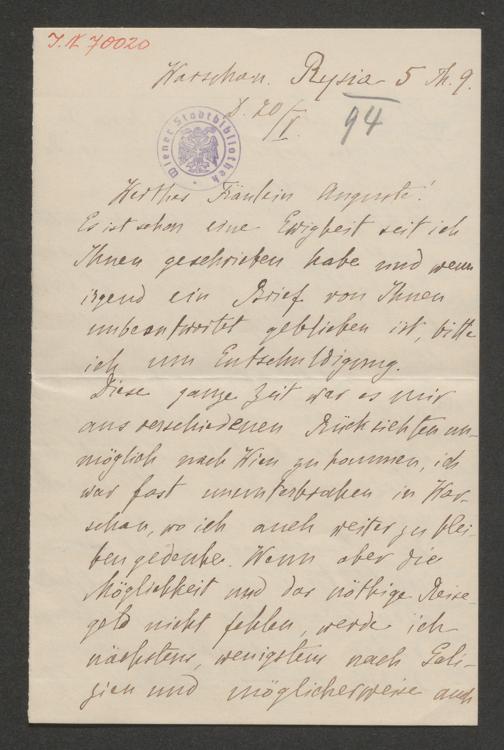 I.N. 70020
Warschau. Rysia 5 Th. 9.
D. 20/I. 94
Wiener Stadtbibliothek
Werthes Fräulein Auguste!
Es ist schon eine Ewigkeit seit ich
Ihnen geschrieben habe und wenn
irgend ein Brief von Ihnen
unbeantwortet geblieben ist, bitte
ich um Entschuldigung.
Diese ganze Zeit war es mir
aus verschiedenen Rücksichten un-
möglich nach Wien zu kommen, ich
war fast ununterbrochen in War-
schau, wo ich auch weiter zu blei-
ben gedenke. Wenn aber die
Möglichkeit und das nöthige Reise-
geld nicht fehlen, werde ich
nächstens, wenigstens nach Gali-
zien und möglicherweise auch